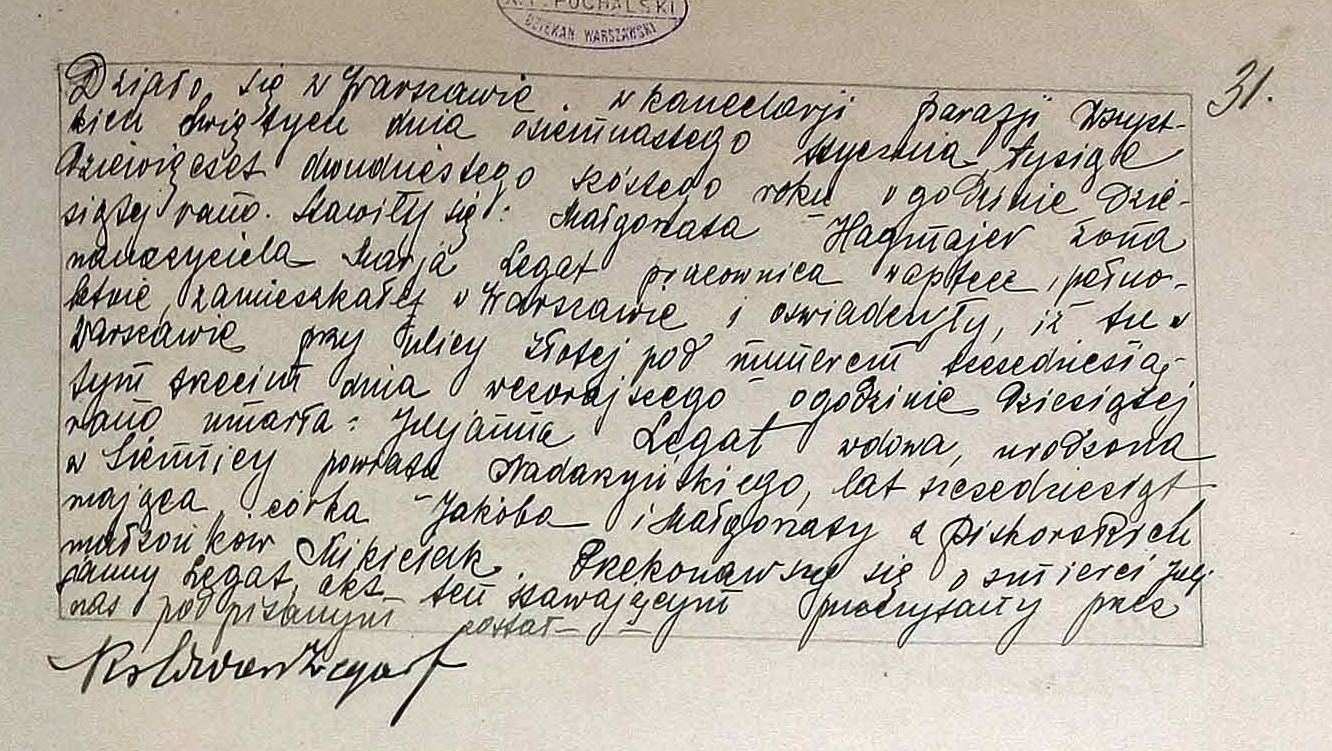 POCHALSKI
DZIEKAN WARSZAWSKI
31.
Działo się w Warszawie w kancelarji Parafji Wszyst-
kich Świętych dnia osiemnastego stycznia tysiąc
dziewięćset dwudziestego szóstego roku o godzinie dzie-
siątej rano. Stawiły się: Małgorzata Hagmajer żona
nauczyciela Marja Legat pracownica w aptece, pełno-
letnie, zamieszkałe w Warszawie i oświadczyły, iż tu w
Warszawie przy ulicy Złotej pod numerem sześćdziesią-
tym trzecim dnia wczorajszego o godzinie dziesiątej
rano umarła: Juljanna Legat wdowa, urodzona
w Siennicy powiatu Nadarzyńskiego, lat sześćdziesiąt
mająca, córka Jakóba i Małgorzaty z Piskorskich
małżonków Mikiciak. Przekonawszy się o śmierci Julj-
janny Legat, akt ten stawającym przeczytany przez
nas podpisanym został